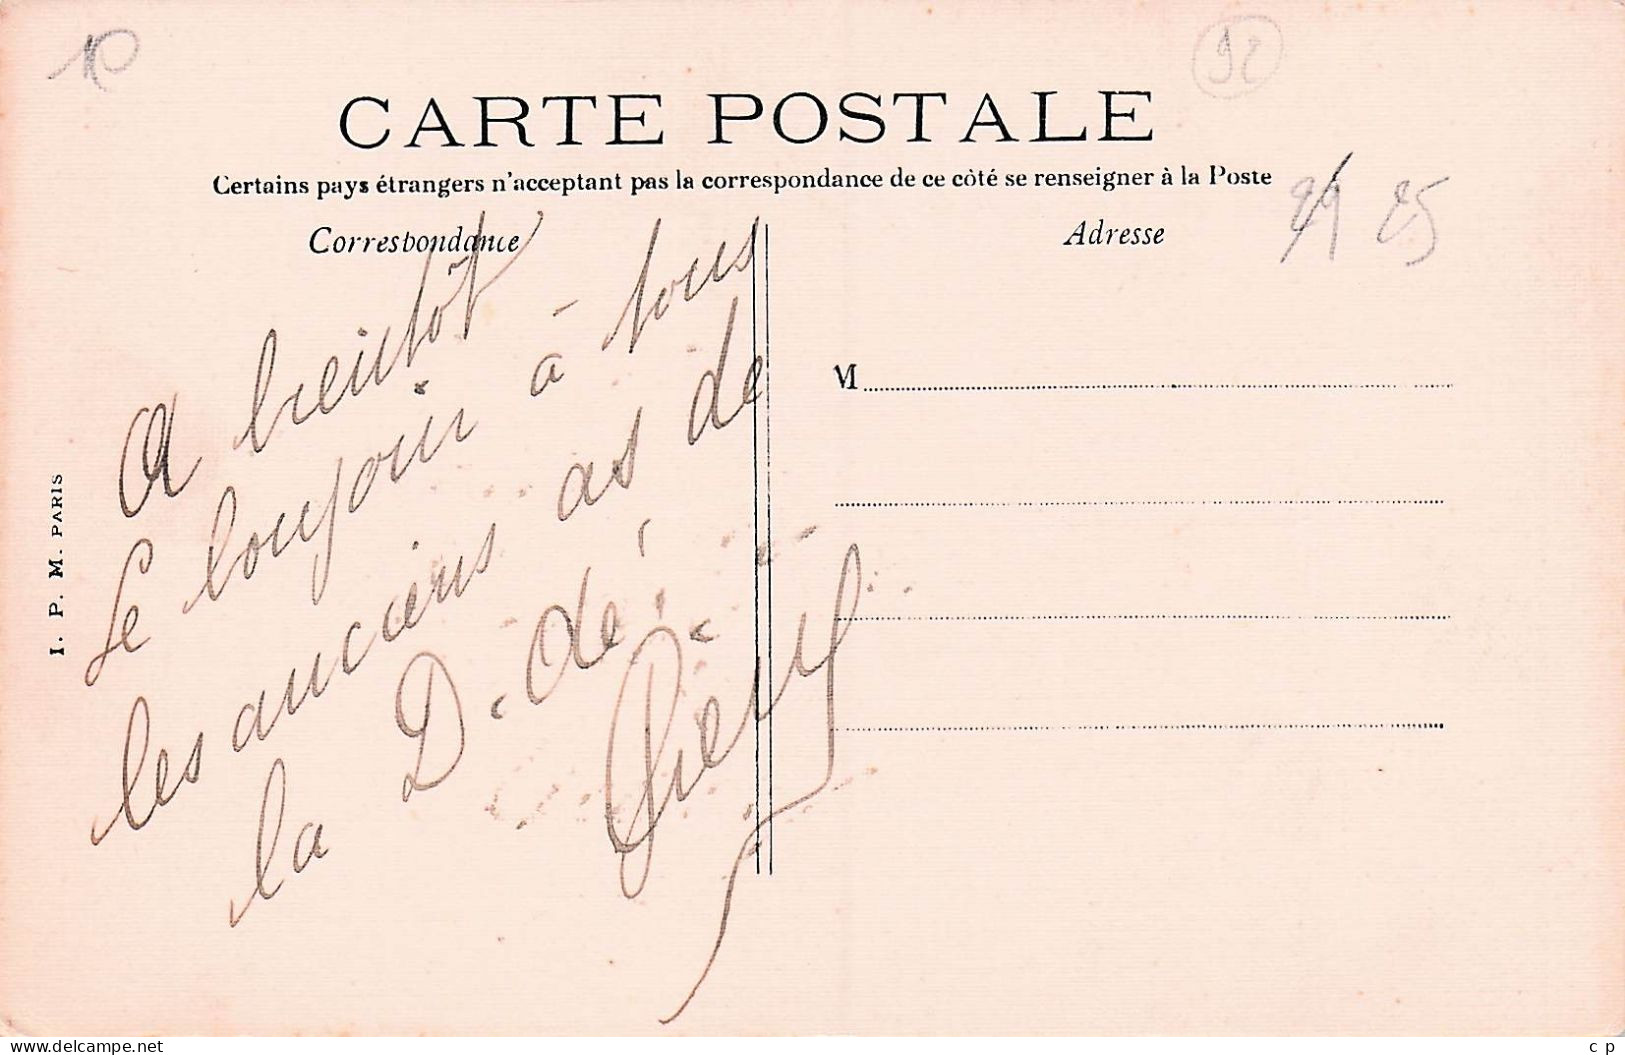 10
92
CARTE POSTALE
Certains pays étrangers n'acceptant pas la correspondance de ce côté se renseigner à la Poste
Correspondance
Adresse
25
A bientôt
Le bonjour à tous
les anciens as de
la D. de
M
I. P. M. PARIS
www.delcampe.net
c p